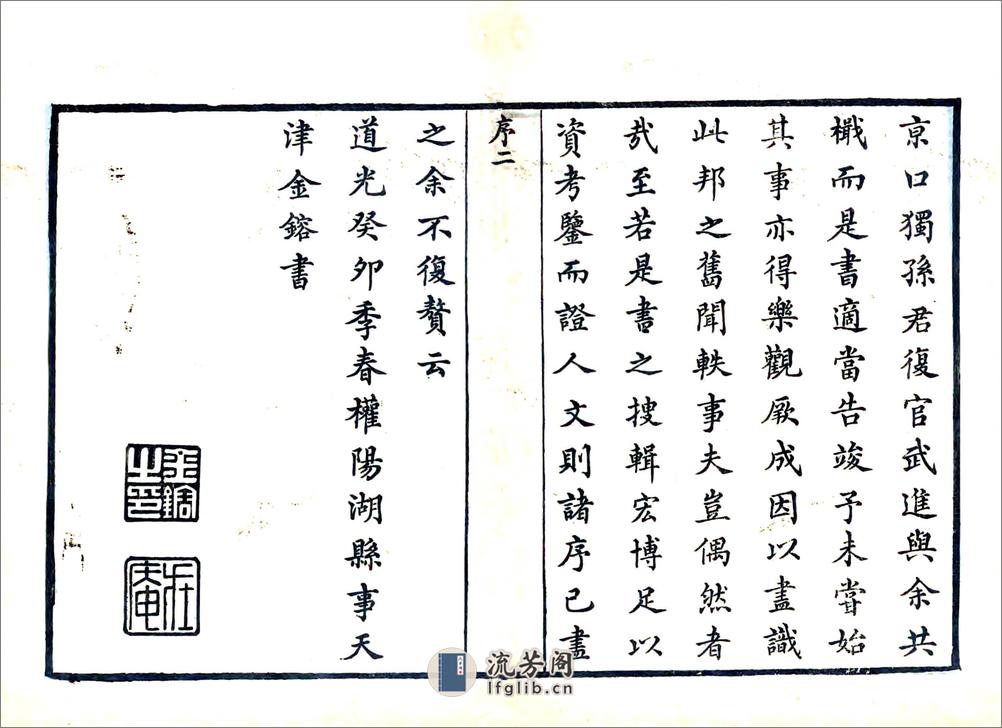 京口獨孫君復官武進與余共
檝而是書適當告竣予未嘗始
其事亦得樂觀厥成因以盡識
此邦之舊聞軼事夫豈偶然者
哉至若是書之搜輯宏博足以
資考鑒而證人文則諸序已盡
序二
之余不復贅云
道光癸卯季春權陽湖縣事天
津金鎔書
流芳阁
lfglib.cn